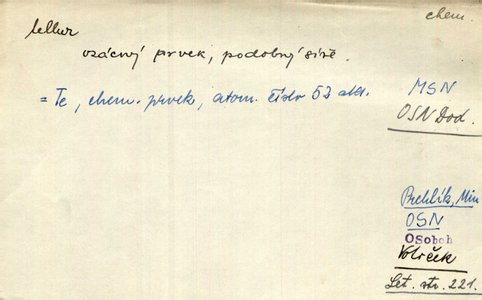 chem.
tellur
vzácný prvek, podobný síře.
= Te, chem. prvek, atom. číslo 52 atd.
MSN
OSN Dod.
Prchlík, Min
OSN
OSobch
Votoček
Let. str. 221.